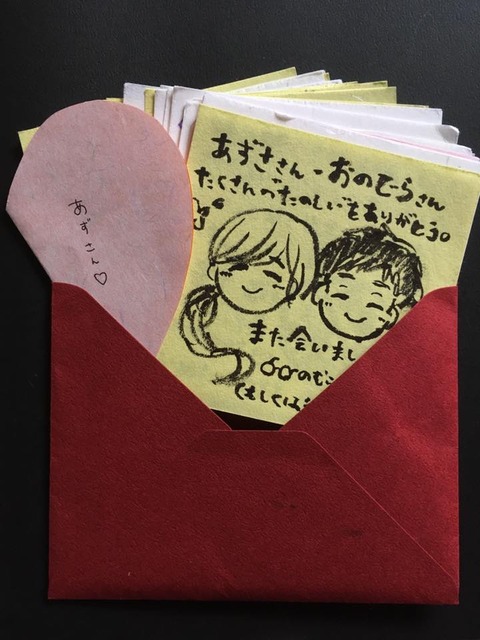 あずさん♡
あずささん・おのてらさん
たくさんのたのしいをありがとう。
また会いまし
のむこ
(もしくは